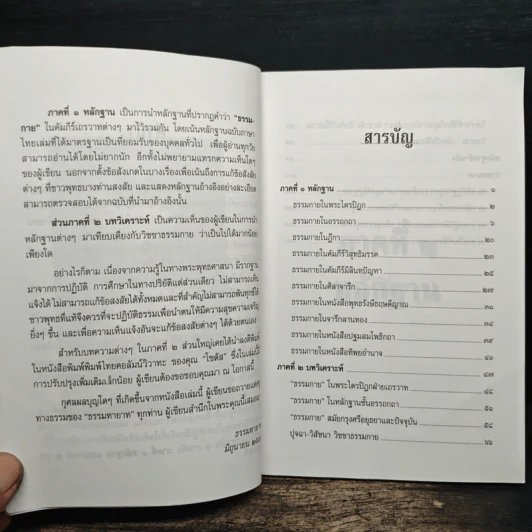 ภาคที่ ๑ หลักฐาน เป็นการนำหลักฐานที่ปรากฏคำว่า "ธรรม-
กาย" ในคัมภีร์เถรวาทต่างๆ มาไว้รวมกัน โดยเน้นหลักฐานฉบับภาษา
ไทยเล่มที่ได้มาตรฐานเป็นที่ยอมรับของบุคคลทั่วไป เพื่อผู้อ่านทุกวัย
สามารถอ่านได้โดยไม่ยากนัก อีกทั้งไม่พยายามแทรกความเห็นใดๆ
ของผู้เขียน นอกจากตั้งข้อสังเกตในบางเรื่องเพื่อเน้นถึงการแก้ข้อสงสัย
ต่างๆ ที่ชาวพุทธบางท่านสงสัย และแสดงหลักฐานอ้างอิงอย่างละเอียด
สามารถตรวจสอบได้จากฉบับที่นำมาอ้างอิงนั้น
ส่วนภาคที่ ๒ บทวิเคราะห์ เป็นความเห็นของผู้เขียนในการนำ
หลักฐานต่างๆ มาเทียบเคียงกับวิชชาธรรมกาย ว่าเป็นไปได้มากน้อย
เพียงใด
อย่างไรก็ตาม เนื่องจากความรู้ในทางพระพุทธศาสนา มีรากฐาน
มาจากการปฏิบัติ การศึกษาในทางปริยัติแต่ส่วนเดียว ไม่สามารถเห็น
แจ้งได้ ไม่สามารถแก้ข้อสงสัยได้ทั้งหมดและที่สำคัญไม่สามารถพ้นทุกข์ได้
ชาวพุทธที่แท้จึงควรที่จะปฏิบัติธรรมเพื่อนำตนให้มีความสุขความเจริญ
ยิ่งๆ ขึ้น และเพื่อความเห็นแจ้งอันจะแก้ข้อสงสัยต่างๆ ได้ด้วยตนเอง
สำหรับบทความต่างๆ ในภาคที่ ๒ ส่วนใหญ่เคยได้นำลงตีพิมพ์
ในหนังสือพิมพ์พิมพ์ไทยคอลัมน์วิวาทะ ของคุณ "โชติส" ซึ่งในเล่มนี้
การปรับปรุงเพิ่มเติมเล็กน้อย ผู้เขียนต้องขอขอบคุณมา ณ โอกาสนี้
กุศลผลบุญใดๆ ที่เกิดขึ้นจากหนังสือเล่มนี้ ผู้เขียนขอถวายแด่
ทางธรรมของ "ธรรมทายาท" ทุกท่าน ผู้เขียนสำนึกในพระคุณนี้เสมอ
มิถุนายน
สารบัญ
ภาคที่ ๑ หลักฐาน ๑
ธรรมกายในพระไตรปิฎก ๒
ธรรมกายในอรรถกถา ๖
ธรรมกายในฎีกา ๒๐
ธรรมกายในคัมภีร์วิสุทธิมรรค ๒๓
ธรรมกายในคัมภีร์มิลินทปัญหา ๒๕
ธรรมกายในศิลาจารึก ๒๗
ธรรมกายในหนังสือพุทธรังษีธฤษดีญาณ ๓๑
ธรรมกายในจารึกลานทอง ๓๔
ธรรมกายในหนังสือปฐมสมโพธิกถา ๓๘
ธรรมกายในหนังสือทิพยอำนาจ ๔๑
ภาคที่ ๒ บทวิเคราะห์ ๔๗
"ธรรมกาย" ในพระไตรปิฎกฝ่ายเถรวาท ๔๘
"ธรรมกาย" ในหลักฐานชั้นอรรถกถา ๕๑
"ธรรมกาย" สมัยกรุงศรีอยุธยาและปัจจุบัน ๕๔
ปุจฉา-วิสัชนา วิชชาธรรมกาย ๖๖